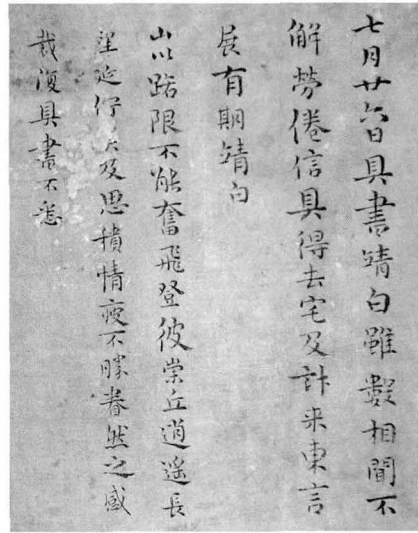 七月廿六日具書靖白雖數相聞不
解勞倦信具得去宅及計来東言
展有期靖白
山以路限不能奮飛登彼崇丘逍遙長
望延佇及思積情疲不勝眷然之感
裁復具書不悉